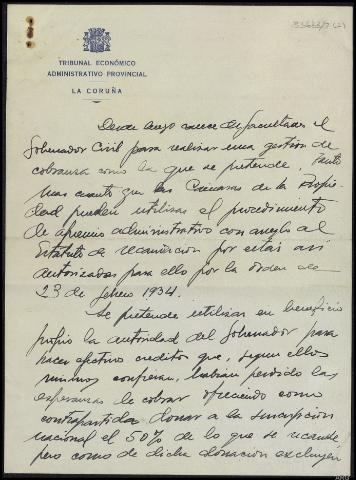 TRIBUNAL ECONÓMICO
ADMINISTRATIVO PROVINCIAL
LA CORUÑA
Desde luego carece de facultades el
Gobernador Civil para realizar una gestion de
cobranza como la que se pretende, tanto
mas cuanto que las Cámaras de la Propie-
dad pueden utilizar el procedimiento
de apremio administrativo con arreglo al
Estatuto de recaudacion por estar asi
autorizadas para ello por la orden de
23 de febrero 1934.
Se pretende utilizar en beneficio
propio la autoridad del Gobernador para
hacer efectivo creditos que, segun ellos
mismos confiesan, habian perdido las
esperanzas de cobrar ofreciendo como
contrapartida donar a la suscripcion
nacional el 50% de lo que se recaude,
pero como de dicha donacion excluyen